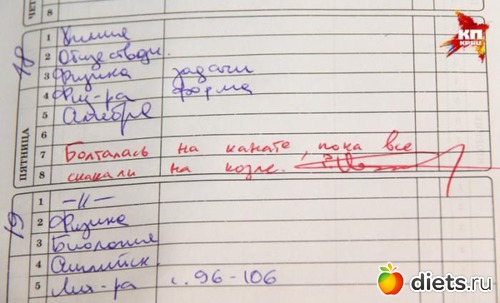 8
18
1 Химия
КП
2 Обществозн.
3 Физика задачи
4 Физ-ра форма
5 Алгебра
6
ПЯТНИЦА
7 Болталась на канате, пока все
8 скакали на козле.
19
1 -"-
2 Физика
3 Биология
4 Английск.
5 Лит-ра с. 96-106
diets.ru